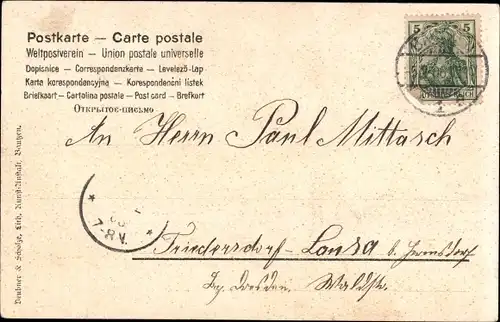 Postkarte — Carte postale
Weltpostverein — Union postale universelle
Dopisnice — Correspondenzkarte — Levelező-Lap
Karta korespondencyjna — Korespondenční lístek
Briefkaart — Cartolina postale — Post card — Brefkort
Открытое письмо
5 5
DEUTSCHES REICH
1
An Herrn Paul Mittasch
7-8V.
Friedersdorf-Lausa b. Hermsdorf
Bez. Dresden. Waldstr.
Beubner & Scholze, Lith. Kunst-Anstalt, Bautzen.